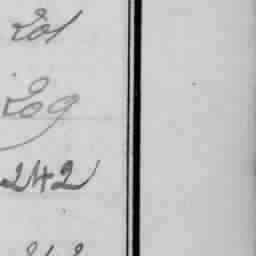 201
209
242